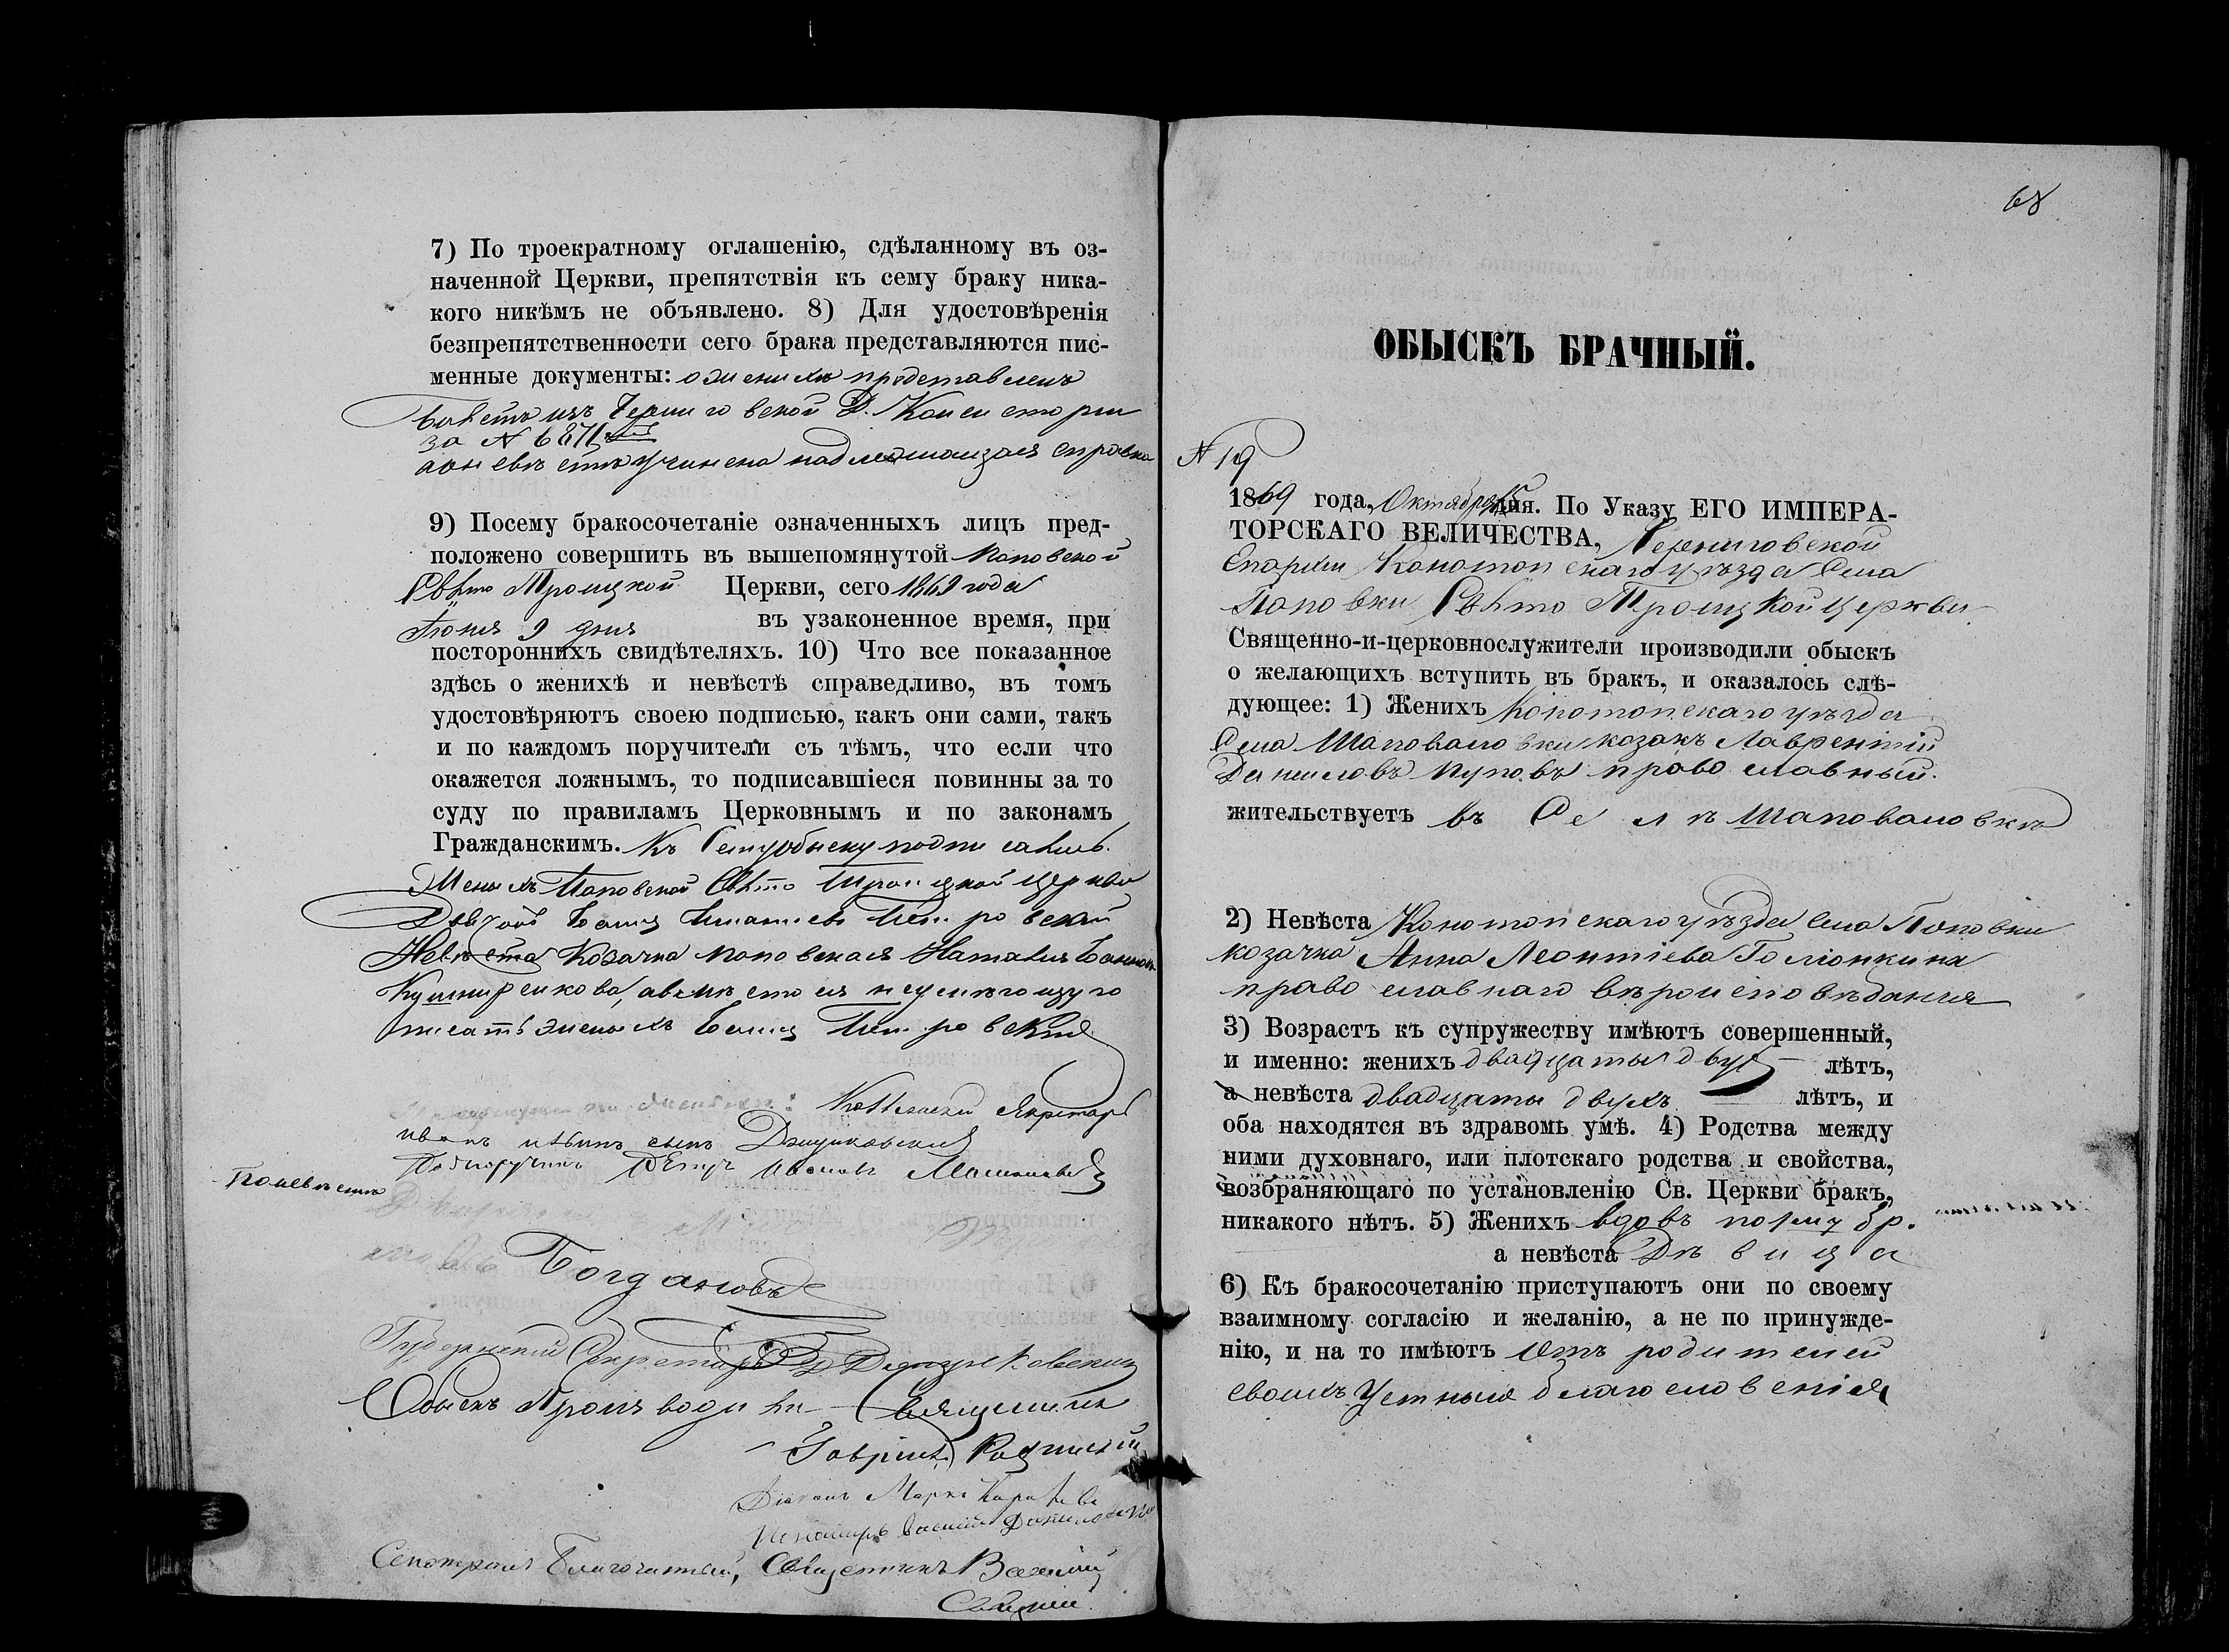 7) По троекратному оглашенію, сдѣланному въ оз-
наченной Церкви, препятствія къ сему браку ника-
кого никѣмъ не объявлено. 8) Для удостовѣренія
безпрепятственности сего брака представляются пис-
менные документы: о женихѣ представленъ
билетъ изъ Черниговской Д. Консисторіи
за № 6871
а о невѣстѣ учинена надлежащая справка
9) Посему бракосочетаніе означенныхъ лицъ пред-
положено совершить въ вышепомянутой Поповской
Свято Троицкой Церкви, сего 1869 года
Іюня 9 дня въ узаконенное время, при
постороннихъ свидѣтеляхъ. 10) Что все показанное
здѣсь о женихѣ и невѣстѣ справедливо, въ томъ
удостовѣряютъ своею подписью, какъ они сами, такъ
и по каждомъ поручители съ тѣмъ, что если что
окажется ложнымъ, то подписавшіеся повинны за то
суду по правиламъ Церковнымъ и по законамъ
Гражданскимъ. Къ Сему обыску подписались.
Женихъ Поповской Свято Троицкой церкви
Невѣста Козачка Поповская Наталія
Кушниренкова, а вмѣсто ея неумѣющую
писать женихъ
Иванъ сынъ
Подпоручикъ Петръ Ивановъ
По невѣстѣ
Богдановъ
Губернскій Секретарь
Обыскъ Производили Священникъ
Гавріилъ
Діаконъ Марко
Пономарь Василій
Смотрѣлъ Благочинный, Священникъ Василій
68
ОБЫСКЪ БРАЧНЫЙ.
№ 19
1869 года, Октября 15 дня. По Указу ЕГО ИМПЕРА-
ТОРСКАГО ВЕЛИЧЕСТВА, Черниговской
Епархіи Конотопскаго уѣзда Села
Поповки Свято Троицкой церкви
Священно-и-церковнослужители производили обыскъ
о желающихъ вступить въ бракъ, и оказалось слѣ-
дующее: 1) Женихъ Конотопскаго уѣзда
Села Шаповаловки козакъ Лаврентій
Даниловъ Пуповъ православный.
жительствуетъ въ Селѣ Шаповаловкѣ
2) Невѣста Конотопскаго уѣзда Села Поповки
козачка Анна Леонтіева Голіонкина
православнаго вѣроисповѣданія
3) Возрастъ къ супружеству имѣютъ совершенный,
и именно: женихъ двадцаты двух лѣтъ,
а невѣста двадцаты двухъ лѣтъ, и
оба находятся въ здравомъ умѣ. 4) Родства между
ними духовнаго, или плотскаго родства и свойства,
возбраняющаго по установленію Св. Церкви бракъ,
никакого нѣтъ. 5) Женихъ вдовъ по 1му бр.
а невѣста Дѣвица
6) Къ бракосочетанію приступаютъ они по своему
взаимному согласію и желанію, а не по принужде-
нію, и на то имѣютъ Отъ родителей
своихъ Устныя благословенія